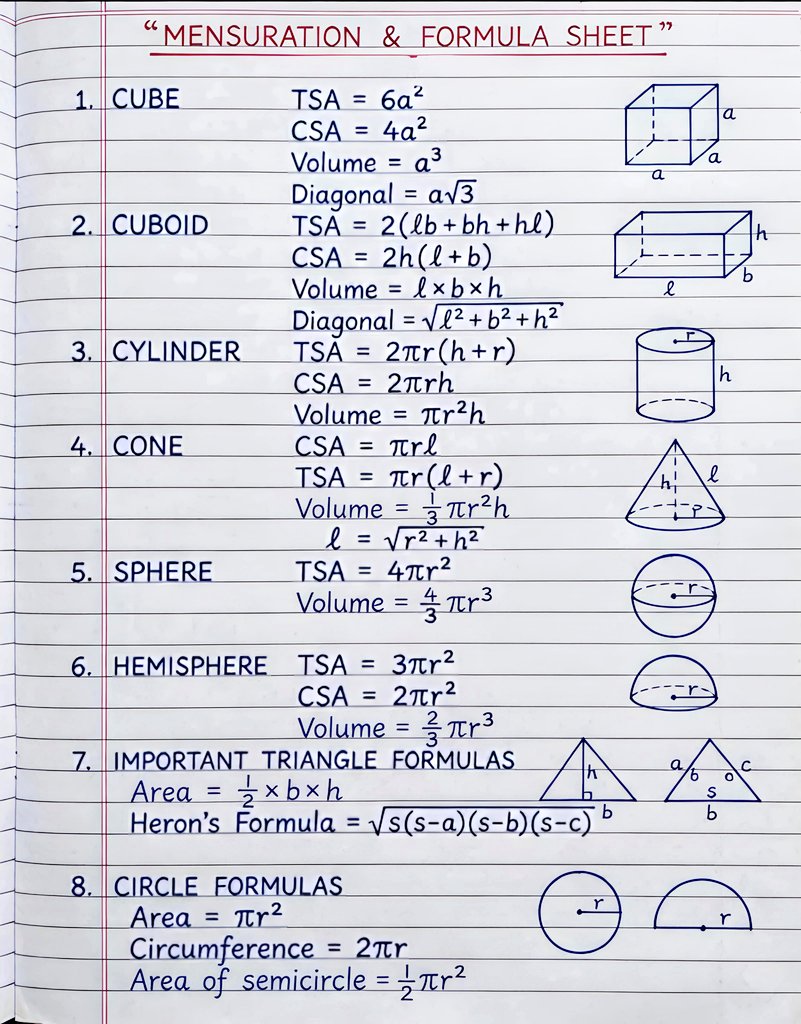 “MENSURATION & FORMULA SHEET”
1. CUBE TSA = 6a²
CSA = 4a²
Volume = a³
Diagonal = a√3
a
a
a
2. CUBOID TSA = 2(lb + bh + hl)
CSA = 2h(l + b)
Volume = l × b × h
Diagonal = √l² + b² + h²
h
b
l
3. CYLINDER TSA = 2πr(h + r)
CSA = 2πrh
Volume = πr²h
r
h
4. CONE CSA = πrl
TSA = πr(l + r)
Volume = 1/3 πr²h
l = √r² + h²
h l
5. SPHERE TSA = 4πr²
Volume = 4/3 πr³
r
6. HEMISPHERE TSA = 3πr²
CSA = 2πr²
Volume = 2/3 πr³
r
7. IMPORTANT TRIANGLE FORMULAS
Area = 1/2 × b × h
Heron's Formula = √s(s-a)(s-b)(s-c)
h
b
a b o c
s
b
8. CIRCLE FORMULAS
Area = πr²
Circumference = 2πr
Area of semicircle = 1/2 πr²
r
r